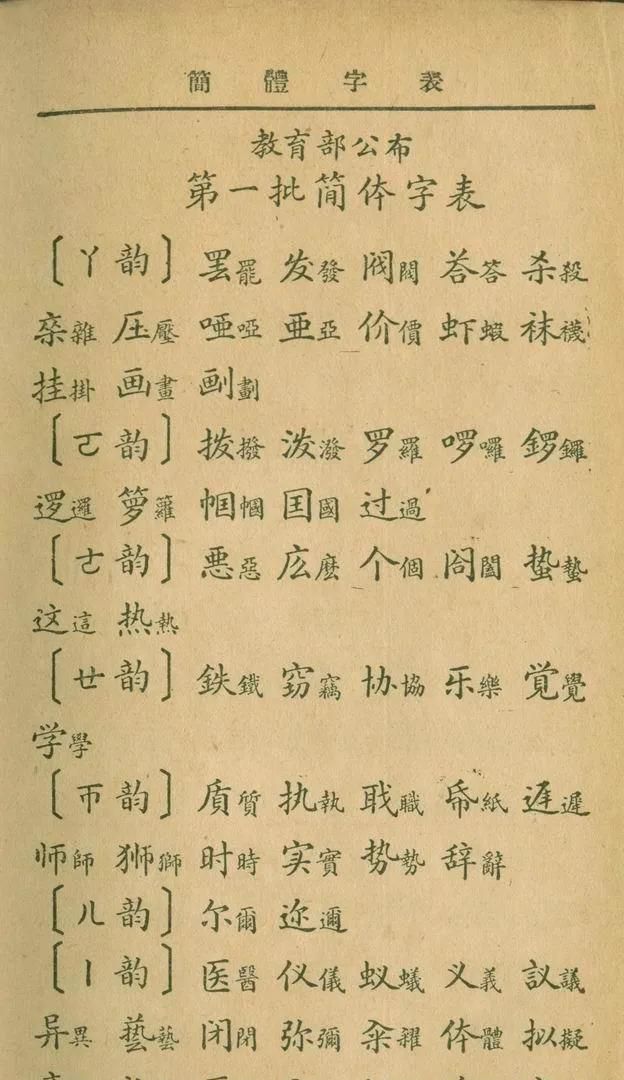 簡體字表
教育部公布
第一批简体字表
〔ㄚ韵〕 罢罷 发發 阀閥 荅答 杀殺
杂雜 压壓 唖啞 亜亞 价價 虾蝦 袜襪
挂掛 画畫 劃
〔ㄛ韵〕 拨撥 泼潑 罗羅 啰囉 鑼
逻邏 箩籮 帼幗 囯國 过過
〔ㄜ韵〕 悪惡 庅麽 个個 閤闔 蛰蟄
这這 热熱
〔ㄝ韵〕 鉄鐵 窃竊 协協 乐樂 覚覺
学學
〔ㄭ韵〕 质質 执執 职職 帋紙 迟遲
师師 狮獅 时時 实實 势勢 辞辭
〔ㄦ韵〕 尔爾 迩邇
〔ㄧ韵〕 医醫 仪儀 蚁蟻 义義 議
异異 藝 闭閉 弥彌 籴糴 体體 拟擬